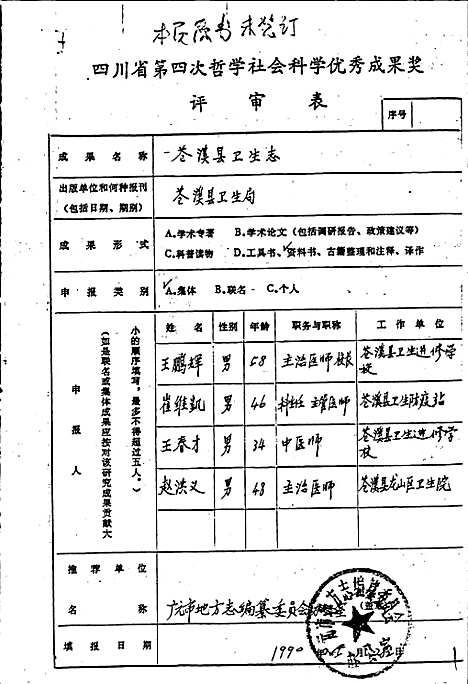 本页原书未装订
四川省第四次哲学社会科学优秀成果奖
评 审 表
序号
成果名称 苍溪县卫生志
出版单位和何种报刊
(包括日期、期别) 苍溪县卫生局
成果形式 A.学术专著 B.学术论文(包括调研报告、政策建议等)
C.科普读物 D.工具书、资料书、古籍整理和注释、译作
申报类别 A.集体 B.联名 C.个人
申报人
(如是联名或集体成果应按对该研究成果贡献大
小的顺序填写,最多不得超过五人。)
姓名 性别 年龄 职务与职称 工作单位
王鹏辉 男 58 主治医师 校长 苍溪县卫生进修学校
崔维凯 男 46 科主任 主管医师 苍溪县卫生防疫站
王春才 男 34 中医师 苍溪县卫生进修学校
赵洪义 男 48 主治医师 苍溪县龙山区卫生院
推荐单位
名称 广元市地方志编纂委员会
(盖章)
填报日期 1990